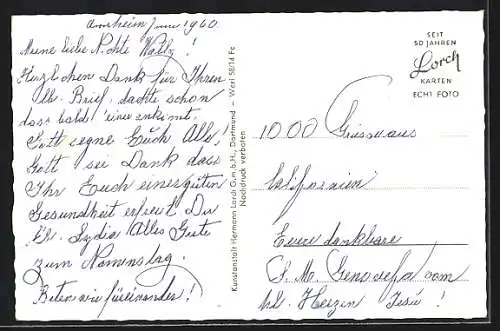 Arnsheim Juni 1960.
Meine liebe Nichte Wally!
Herzlichen Dank für Ihren
lb. Brief, dachte schon
dass bald einer ankommt.
Gott segne Euch Alle!
Gott sei Dank dass
Ihr Euch eines guten
Gesundheit erfreut. Der
lb. Lydia Alles Gute
zum Namenstag.
Beten wir füreinander!
Kunstanstalt Hermann Lorch G.m.b.H., Dortmund – Werl 58/14 Fc
Nachdruck verboten
SEIT
50 JAHREN
Lorch
KARTEN
ECHT FOTO
1000 Grüsse aus
Californien
Eure dankbare
S. M. Genovefa vom
hl. Herzen Jesu!